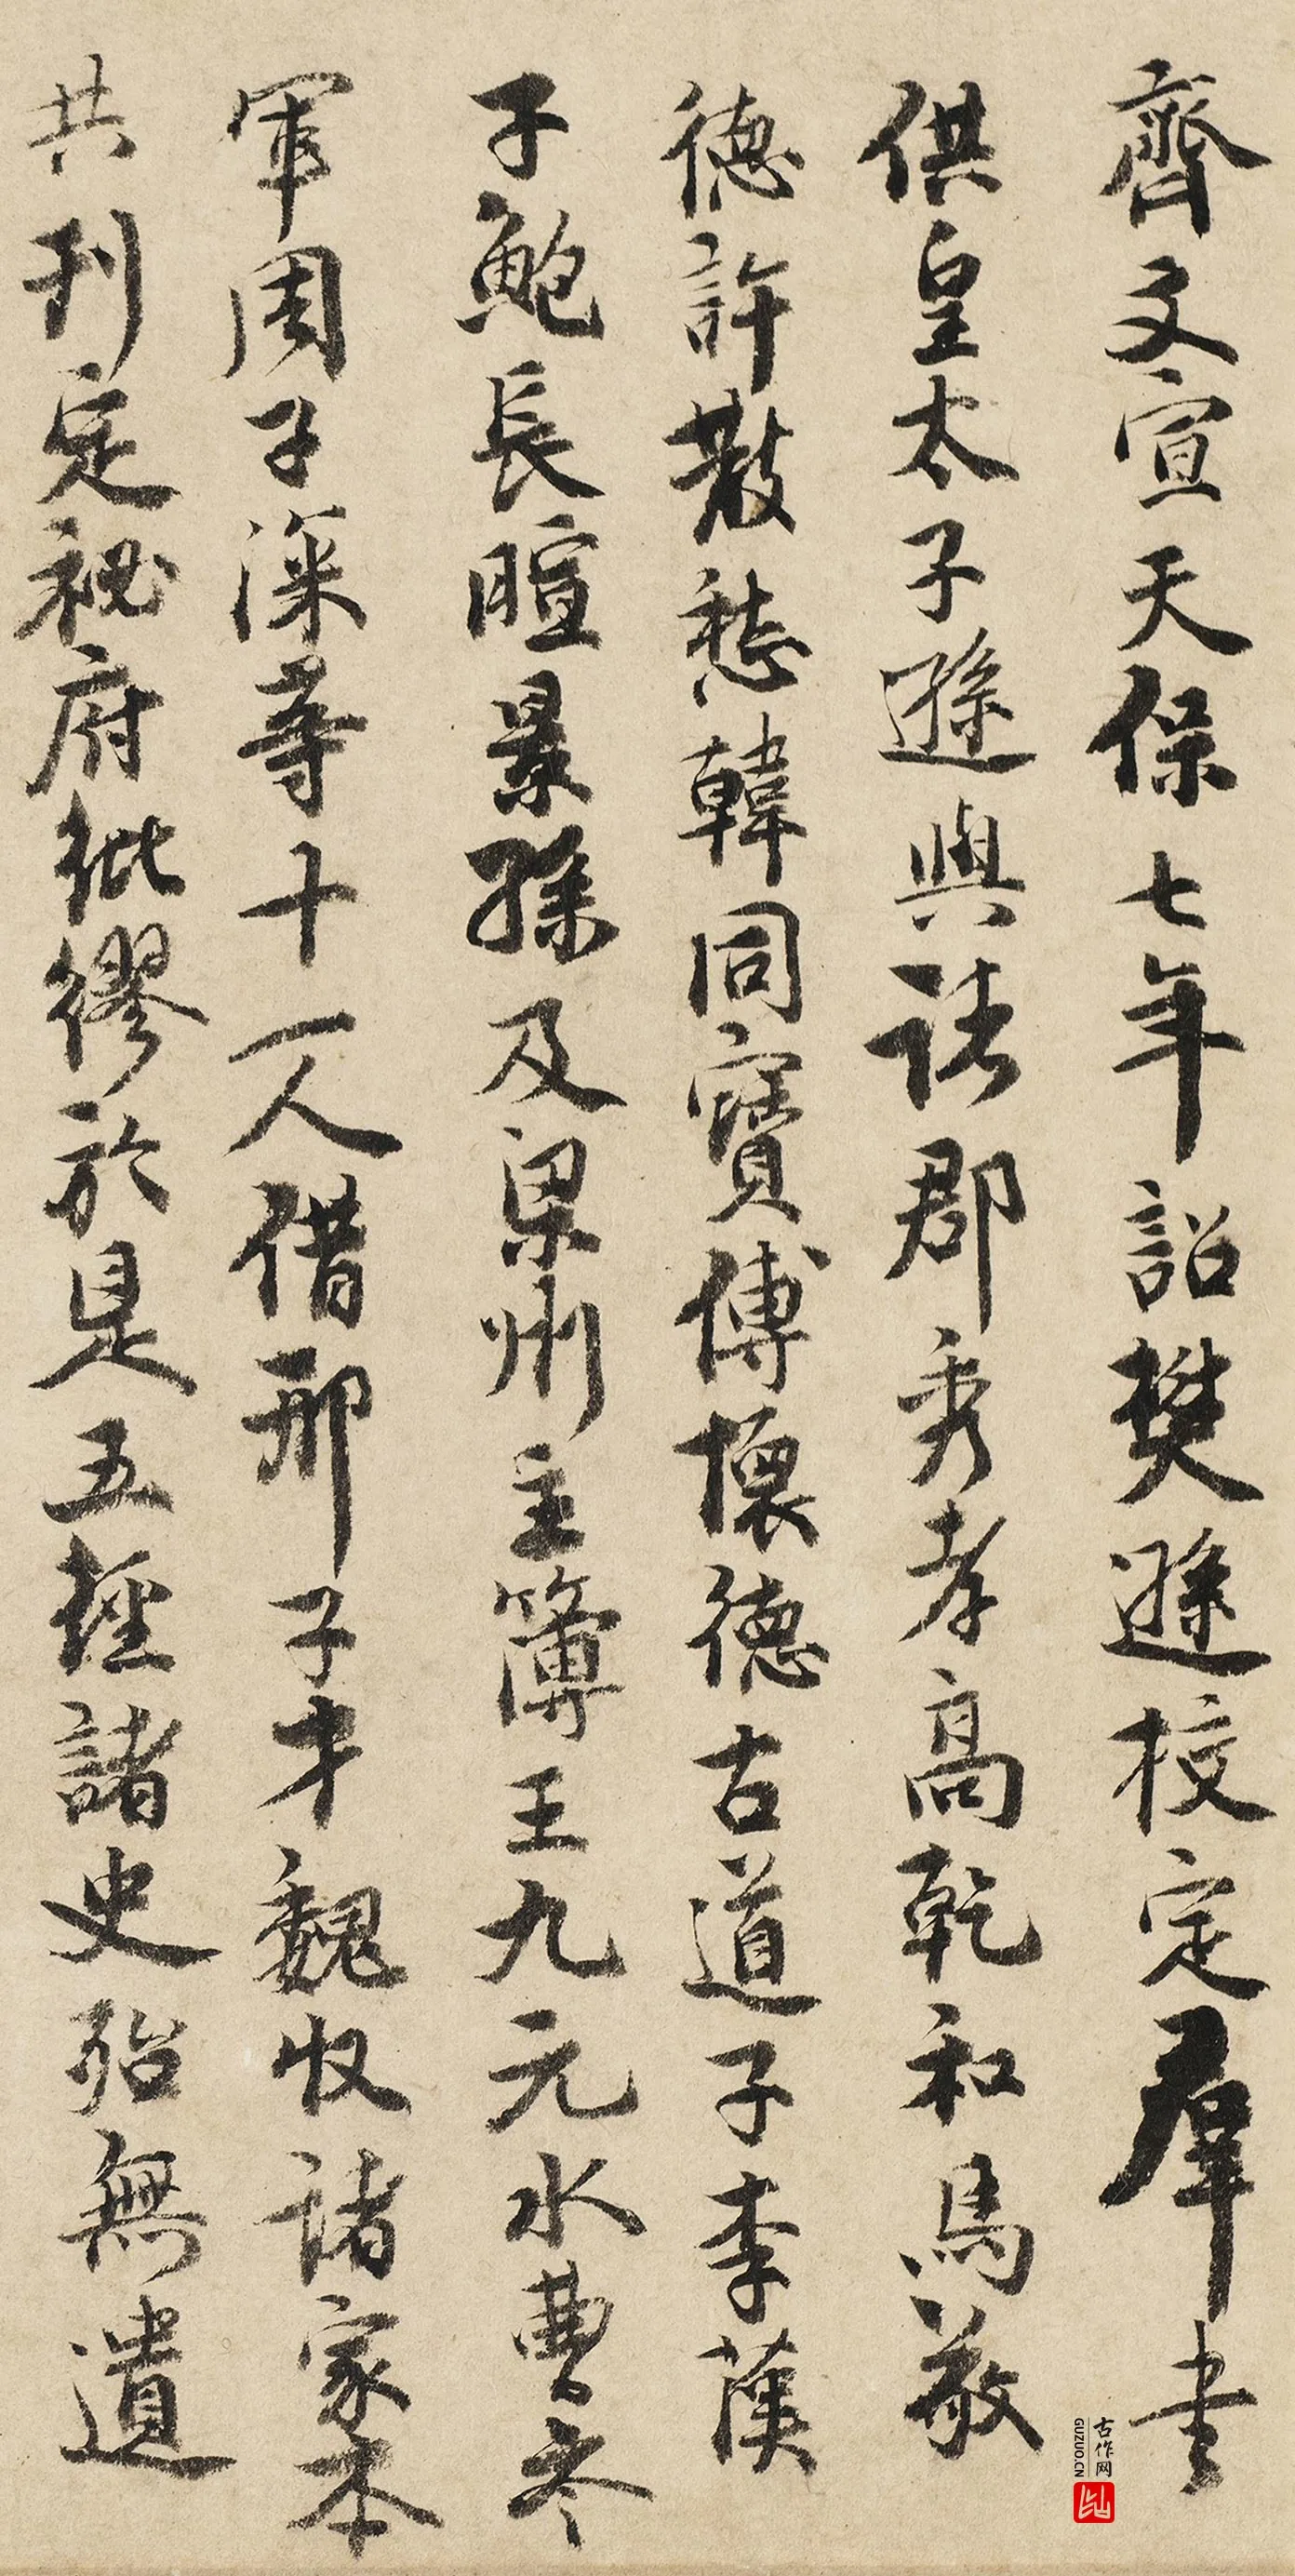 齊文宣天保七年詔樊遜校定羣書
供皇太子遜與諸郡秀孝高乾和馬敬
德許散愁韓同寶傅懷德古道子李漢
子鮑長暄景孫及梁州主簿王九元水曹參
軍周子深等十一人借邢子才魏收諸家本
共刊定秘府紕繆於是五經諸史殆無遺
古作网
GUZUO.CN